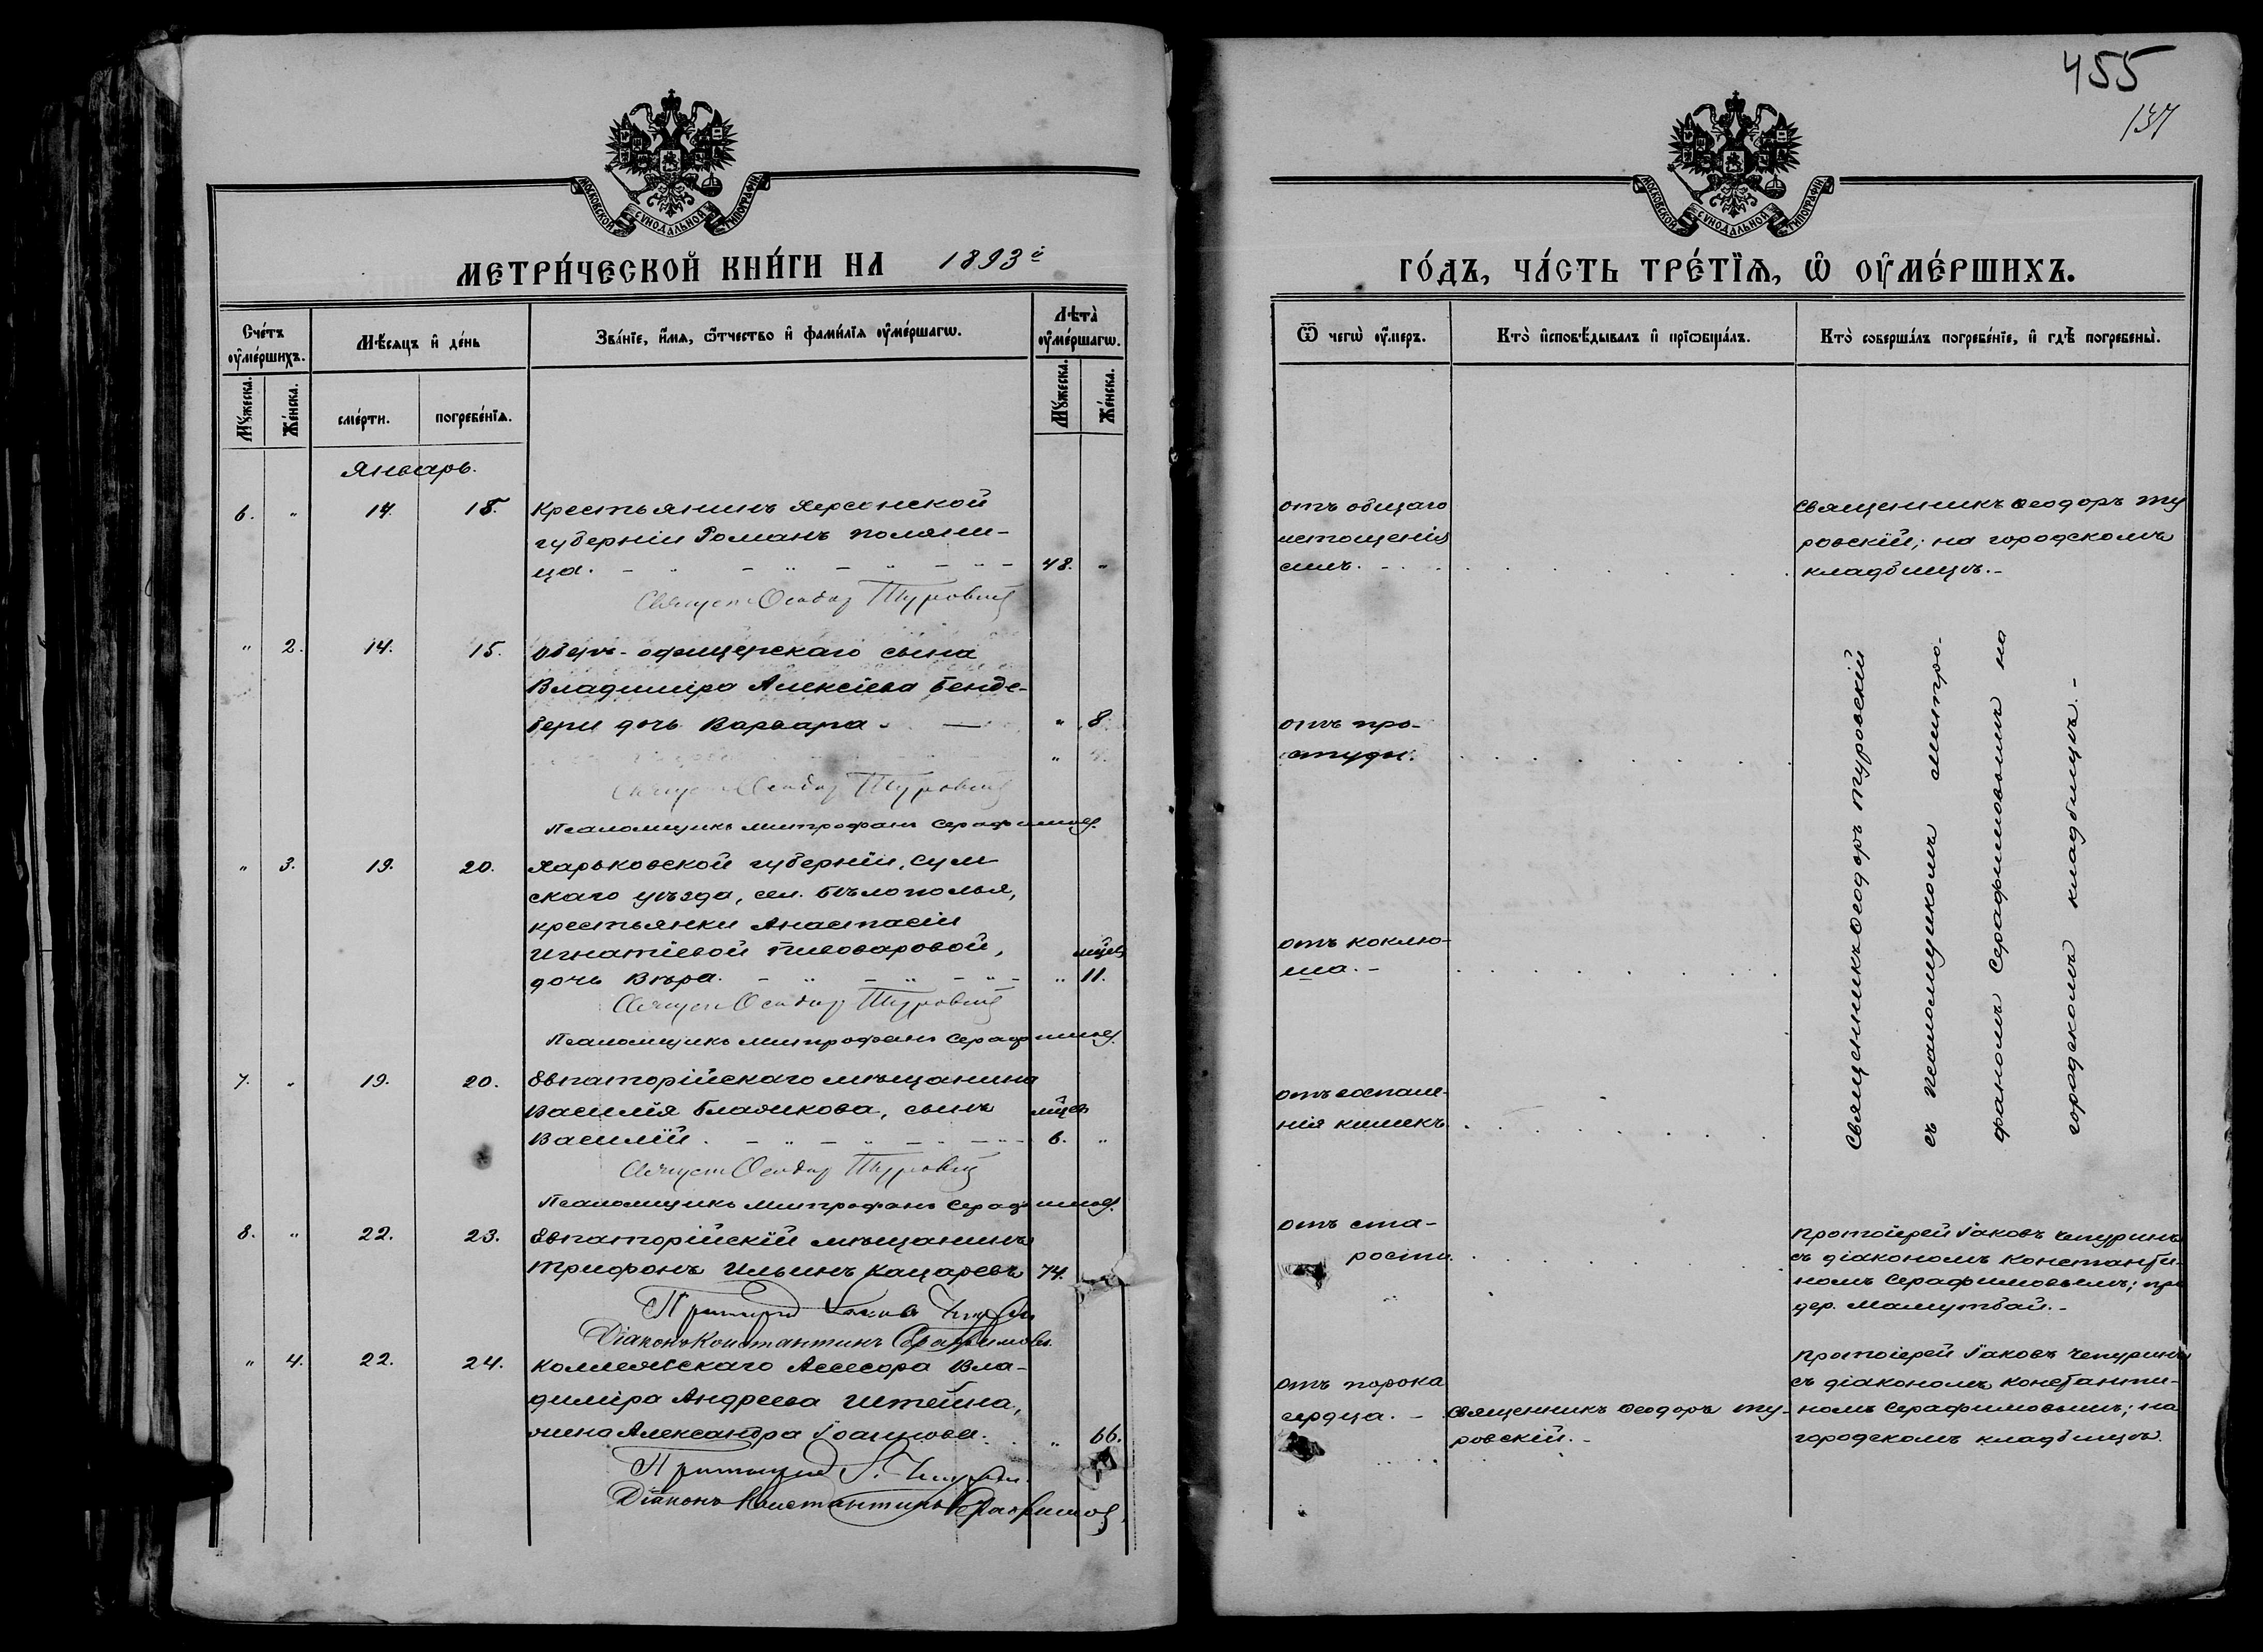 455
137
МОСКОВСКОЙ СУНОДАЛЬНОЙ ТИПОГРАФІИ
МЕТРИ́ЧЕСКОЙ КНИ́ГИ НА 1893й
Сче́тъ ᲂу҆ме́ршихъ.
Мѣ́сяцъ и҆ де́нь
Зва́нїе, и҆́мѧ, ѻ҆́тчество и҆ фами́лїѧ ᲂу҆ме́ршагѡ.
Лѣта̀ ᲂу҆ме́ршагѡ.
Мꙋ́жеска.
Же́нска.
сме́рти.
погребе́нїѧ.
Мꙋ́жеска.
Же́нска.
Январь.
6. " 14. 15. Крестьянинъ Херсонской
губерніи Романъ Поляни-
ца. 48. "
Священ. Ѳеодоръ Туровскій
" 2. 14. 15. Оберъ-офицерскаго сына
Владиміра Алексіева Бенде-
бери дочь Варвара. " 8.
Священ. Ѳеодоръ Туровскій
Псаломщикъ Митрофанъ Серафимовъ.
" 3. 19. 20. Харьковской губерніи, Сум
скаго уѣзда, сел. Бѣлополья,
крестьянки Анастасіи
Игнатіевой Пивоваровой, мѣсяц.
дочь Вѣра. " 11.
Священ. Ѳеодоръ Туровскій
Псаломщикъ Митрофанъ Серафимовъ.
7. " 19. 20. Евпаторійскаго мѣщанина
Василія Владикова, сынъ мѣсяц.
Василій. 6. "
Священ. Ѳеодоръ Туровскій
Псаломщикъ Митрофанъ Серафимовъ.
8. " 22. 23. Евпаторійскій мѣщанинъ
Трифонъ Ильинъ Кацаревъ 74.
Протоіерей Іаковъ Чепуринъ
Діаконъ Константинъ Серафимовъ.
" 4. 22. 24. Коллежскаго Ассесора Вла-
диміра Андреева Штейна,
жена Александра Іоаннова. " 66.
Протоіерей І. Чепуринъ.
Діаконъ Константинъ Серафимовъ
МОСКОВСКОЙ СУНОДАЛЬНОЙ ТИПОГРАФІИ
ГО́ДЪ, ЧА́СТЬ ТРЕ́ТЇѦ, Ѽ ОУ҆МЕ́РШИХЪ.
Ѿ чегѡ̀ ᲂу҆́меръ.
Кто̀ и҆сповѣ́дывалъ и҆ прїѡбща́лъ.
Кто̀ соверша́лъ погребе́нїе, и҆ гдѣ̀ погребены̀.
отъ общаго
истощенія
силъ.
Священникъ Ѳеодоръ Ту
ровскій; на городскомъ
кладбищѣ.
отъ про-
студы.
отъ коклю-
ша.
отъ воспале-
нія кишекъ
Священникъ Ѳеодоръ Туровскій
съ псаломщикомъ Митро-
фаномъ Серафимовымъ на
городскомъ кладбищѣ.
отъ ста-
рости.
Протоіерей Іаковъ Чепуринъ
съ діакономъ Константи-
номъ Серафимовымъ; при
дер. Мамутбай.
отъ порока
сердца.
Священникъ Ѳеодоръ Ту-
ровскій.
Протоіерей Іаковъ Чепуринъ
съ діакономъ Константи-
номъ Серафимовымъ; на
городскомъ кладбищѣ.